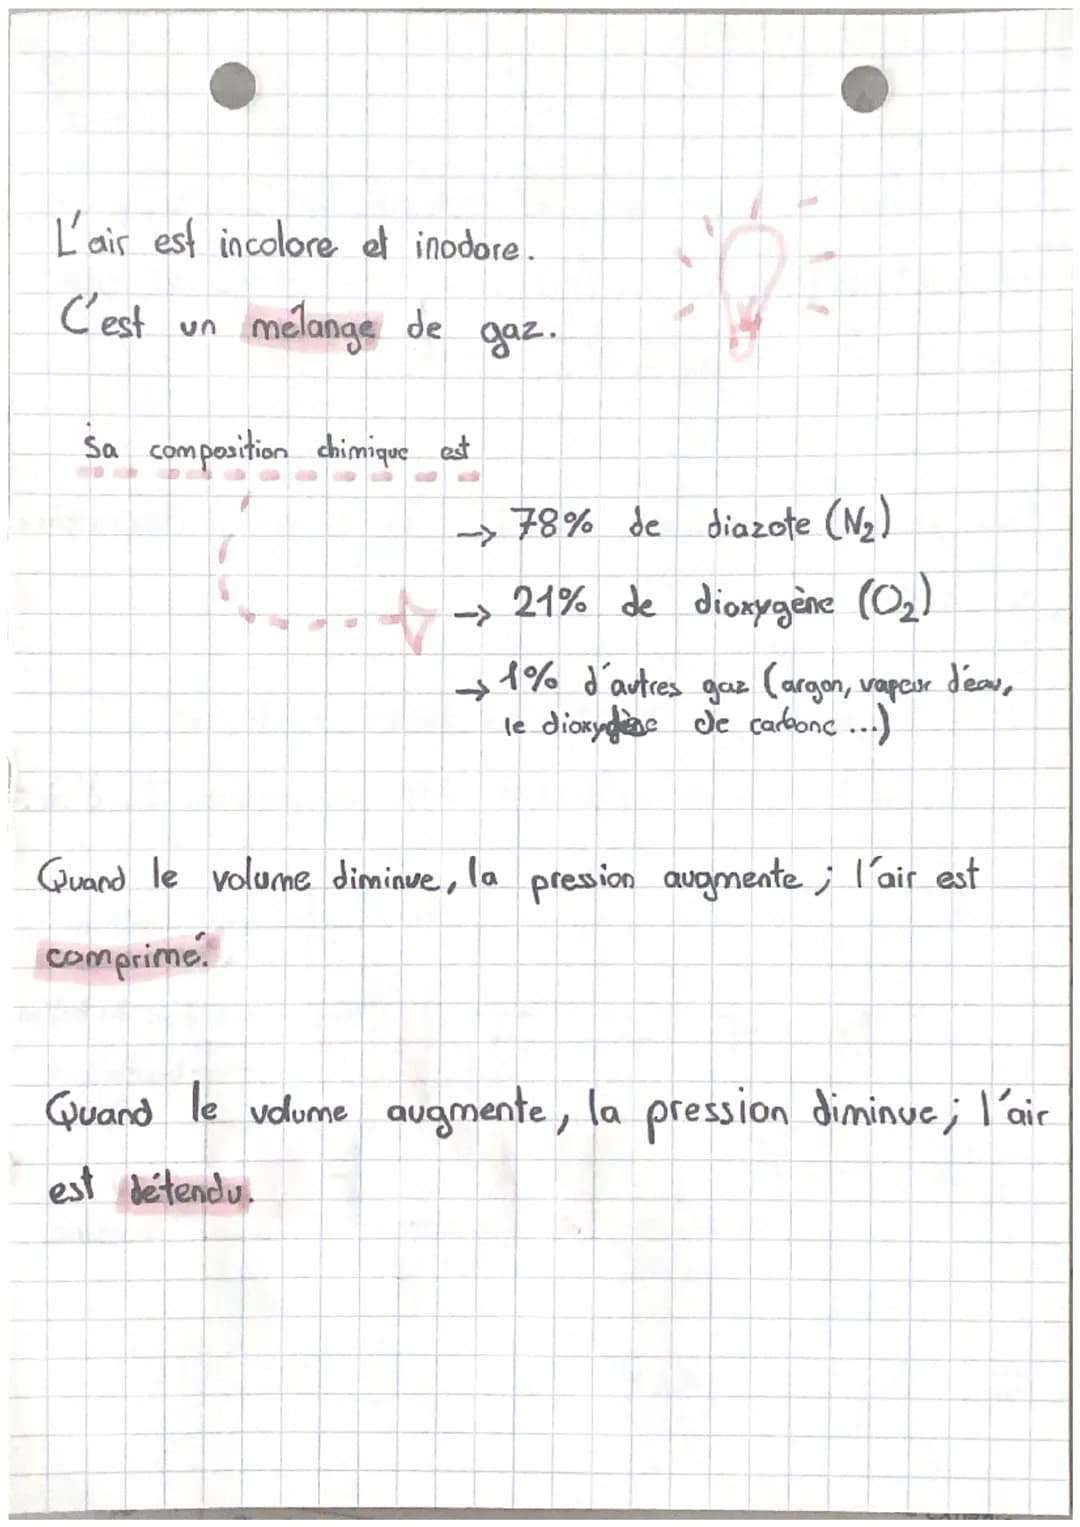 L'air est incolore et inodore.
C'est un mélange de gaz.
Sa composition chimique est
→ 78% de diazote (N₂)
→ 21% de dioxygène (O₂)
→ 1% d'autres gaz (argon, vapeur d'eau,
le dioxygène de carbone ...)
Quand le volume diminue, la pression augmente ; l'air est
comprimé.
Quand le volume augmente, la pression diminue ; l'air
est détendu.